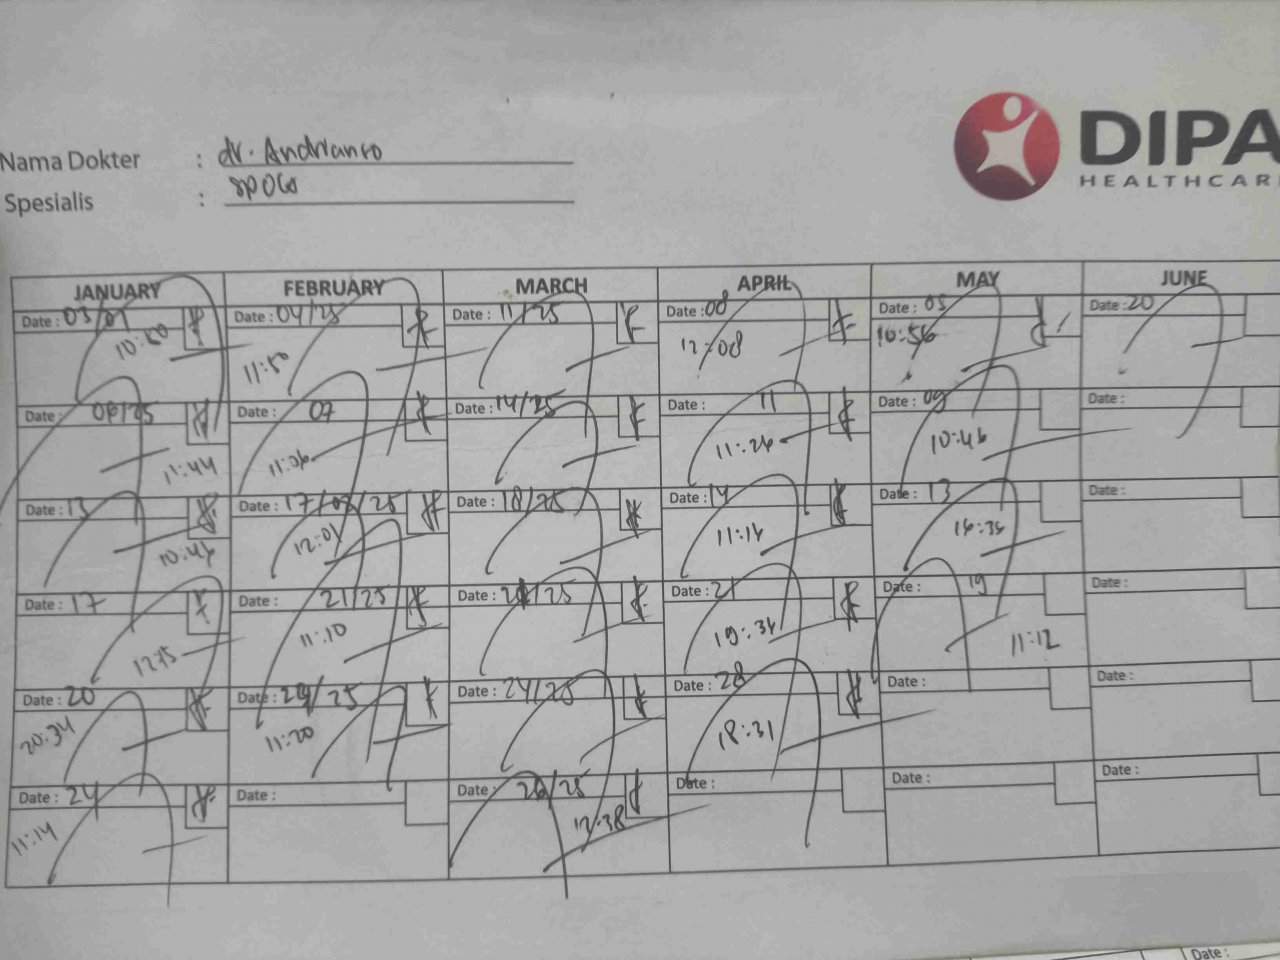 Nama Dokter : dr. Andrianro
Spesialis :
DIPA
HEALTHCAR
JANUARY FEBRUARY MARCH APRIL MAY JUNE
Date : 03/01 Date : 04/25 Date : 11/25 Date : 08 Date : 05 Date : 20
10:50 11:50 12:08 10:56
Date : 06/25 Date : 07 Date : 14/25 Date : 11 Date : 09 Date :
11:44 11:06 11:26 10:46
Date : 13 Date : 17/02/25 Date : 18/25 Date : 14 Date : 13 Date :
10:46 12:01 11:14 16:36
Date : 17 Date : 21/25 Date : 21/25 Date : 21 Date : 19 Date :
1275 11:10 19:34 11:12
Date : 20 Date : 24/25 Date : 24/25 Date : 28 Date : Date :
20:34 11:20 18:31
Date : 24 Date : Date : 26/25 Date : Date : Date :
11:14 12:38
Date :